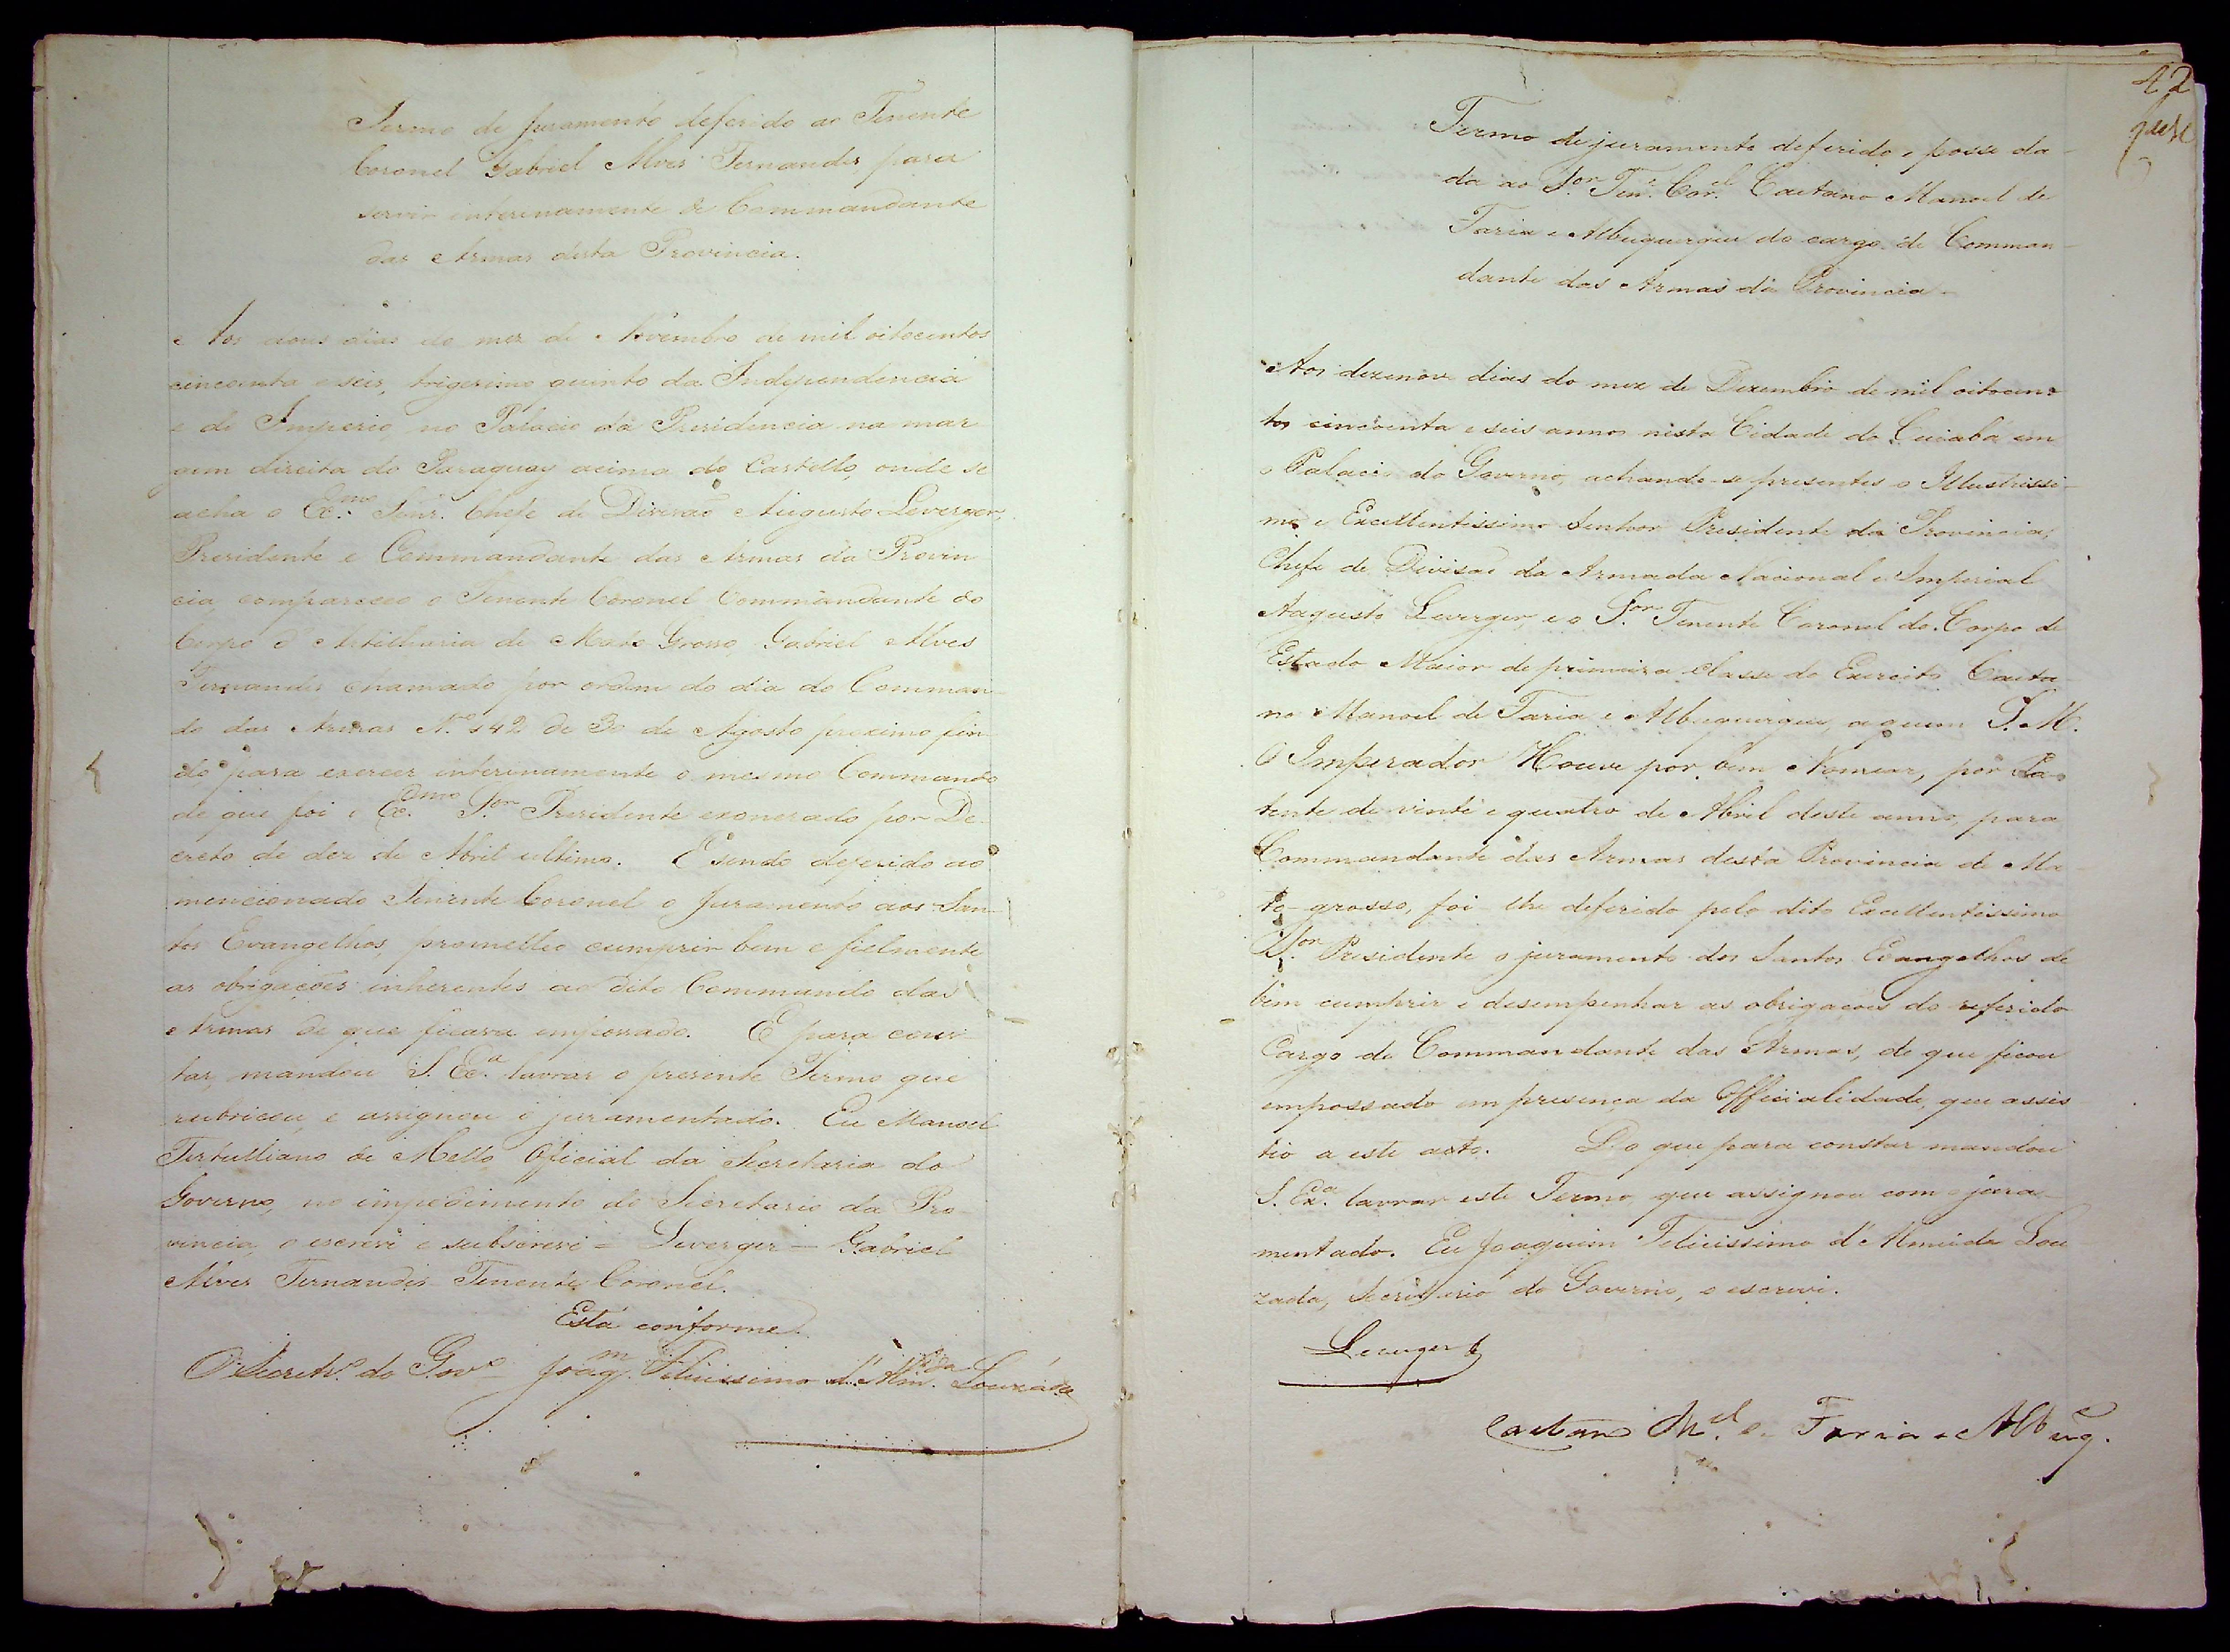 Termo de juramento deferido ao Tenente
Coronel Gabriel Alves Fernandes para
servir interinamente de Commandante
das Armas desta Provincia.
Aos dous dias do mez de Novembro de mil oitocentos
cincoenta e seis, trigesimo quinto da Independencia
e do Imperio, no Palacio da Presidencia na mar
gem direita do Paraguay acima do Castello, onde se
acha o Ex.mo Senr. Chefe de Divisão Augusto Leverger,
Presidente e Commandante das Armas da Provin
cia, compareceo o Tenente Coronel Commandante do
Corpo d'Artilharia de Mato Grosso, Gabriel Alves
Fernandes, chamado por ordem do dia do Comman-
do das Armas N.º 142 de 30 de Agosto proximo fin-
do, para exercer interinamente o mesmo Commando
de que foi o Ex.mo S.or Presidente exonerado por De-
creto de dez de Abril ultimo. E sendo deferido ao
mencionado Tenente Coronel o juramento aos San-
tos Evangelhos, prometteo cumprir bem e fielmente
as obrigações inherentes ao dito Commando das
Armas de que ficava empossado. E para cons-
tar, mandou S. Ex.a lavrar o presente Termo que
rubricou, e assignou o juramentado. Eu Manoel
Tertulliano de Mello, Official da Secretaria do
Governo, no impedimento do Secretario da Pro-
vincia, o escrevi e subscrevi = Leverger = Gabriel
Alves Fernandes Tenente Coronel.
Está conforme.
O Secretr.º do Gov.º Joaq.m Felicissimo d'Alm.da Louzada
42
Termo de juramento deferido e posse da-
da ao S.or Ten.e Cor.el Caetano Manoel de
Faria e Albuquerque do cargo de Comman-
dante das Armas da Provincia-
Aos dezenove dias do mez de Dezembro de mil oitocen-
tos cincoenta e seis annos nesta Cidade do Cuiabá em
o Palacio do Governo, achando-se presentes o Illustrissi-
mo e Excellentissimo Senhor Presidente da Provincia,
Chefe de Divisão da Armada Nacional e Imperial
Augusto Leverger, e o S.or Tenente Coronel do Corpo de
Estado Maior de primeira classe do Exercito Caeta-
no Manoel de Faria e Albuquerque, a quem S. M.
O Imperador Houve por bem Nomear, por Pa-
tente de vinte e quatro de Abril deste anno, para
Commandante das Armas desta Provincia de Ma-
to-grosso, foi-lhe deferido pelo dito Excellentissimo
S.or Presidente o juramento dos Santos Evangelhos de
bem cumprir e desempenhar as obrigações do referido
Cargo de Commandante das Armas, de que ficou
empossado em presença da Officialidade, que assis-
tio a este acto. Do que para constar mandou
S. Ex.a lavrar este Termo, que assignou com o jura-
mentado. Eu Joaquim Felicissimo d'Almeida Lou
zada, Secretario do Governo, o escrevi.
Leverger
Caetano M.el de Faria e Albuq.e